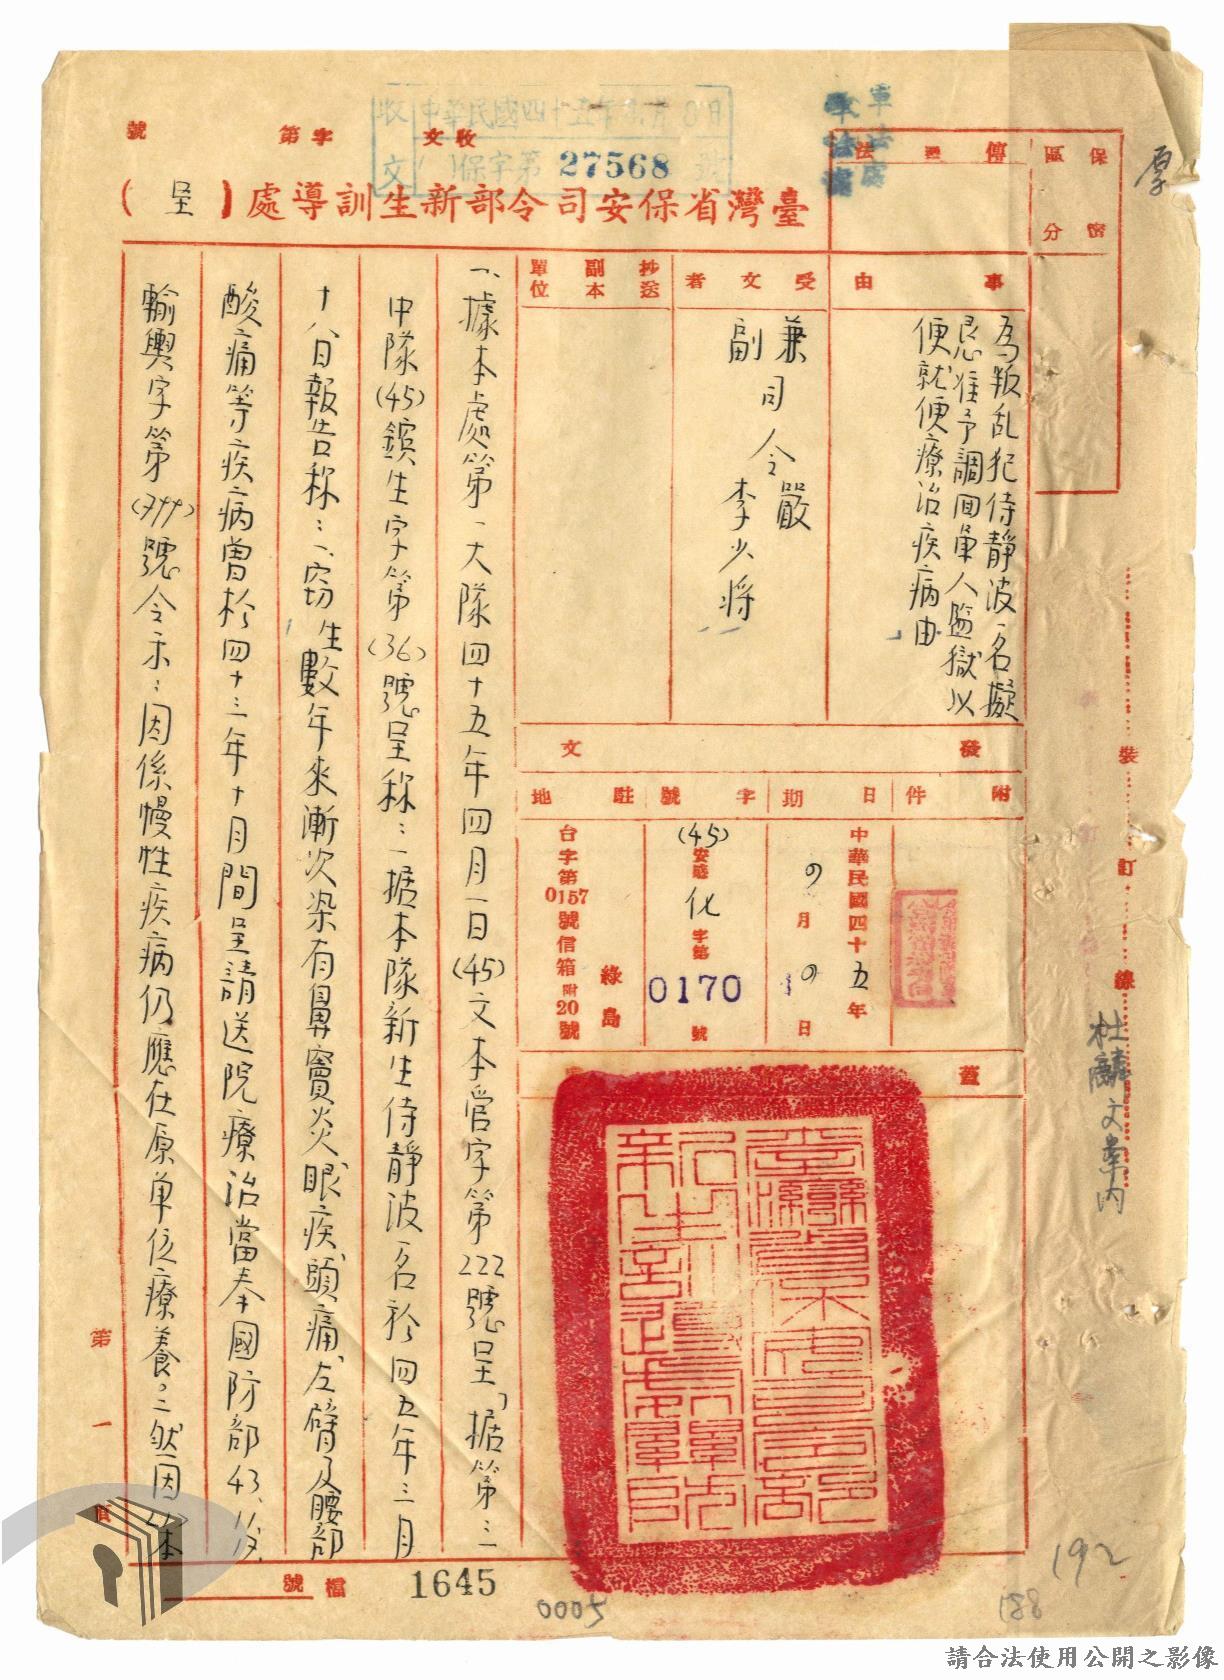 收文 字第 號
收文
中華民國四十五年 月 日
( )保字第 27568 號
軍法處
臺灣省保安司令部新生訓導處(呈)
傳遞法
保密區分
事由
為叛乱犯侍靜波一名擬
恳准予調回軍人監獄以
便就便療治疾病由
受文者
兼司令嚴
副 李少将
抄送副本單位
發文
附件
日期
中華民國四十五年
月 日
字號
(45)安感化字第
0170 號
駐地
綠島
台字第0157號信箱附20號
蓋
一、據本處第一大隊四十五年四月一日(45)文本管字第222號呈「据第三
中隊(45)鑌生字第(36)號呈称:一据本隊新生侍靜波一名於四五年三月
十八日報告称:一、窃生數年來漸次染有鼻竇炎眼疾、頭痛、左臂及腰部
酸痛等疾病曾於四十三年十月間呈請送院療治當奉國防部43、
輸輿字第(799)號令示:因係慢性疾病仍應在原單位療養。二然因以本
裝訂線
杜麟文案內
厚
第一頁
檔號
1645
0005
188
192
請合法使用公開之影像